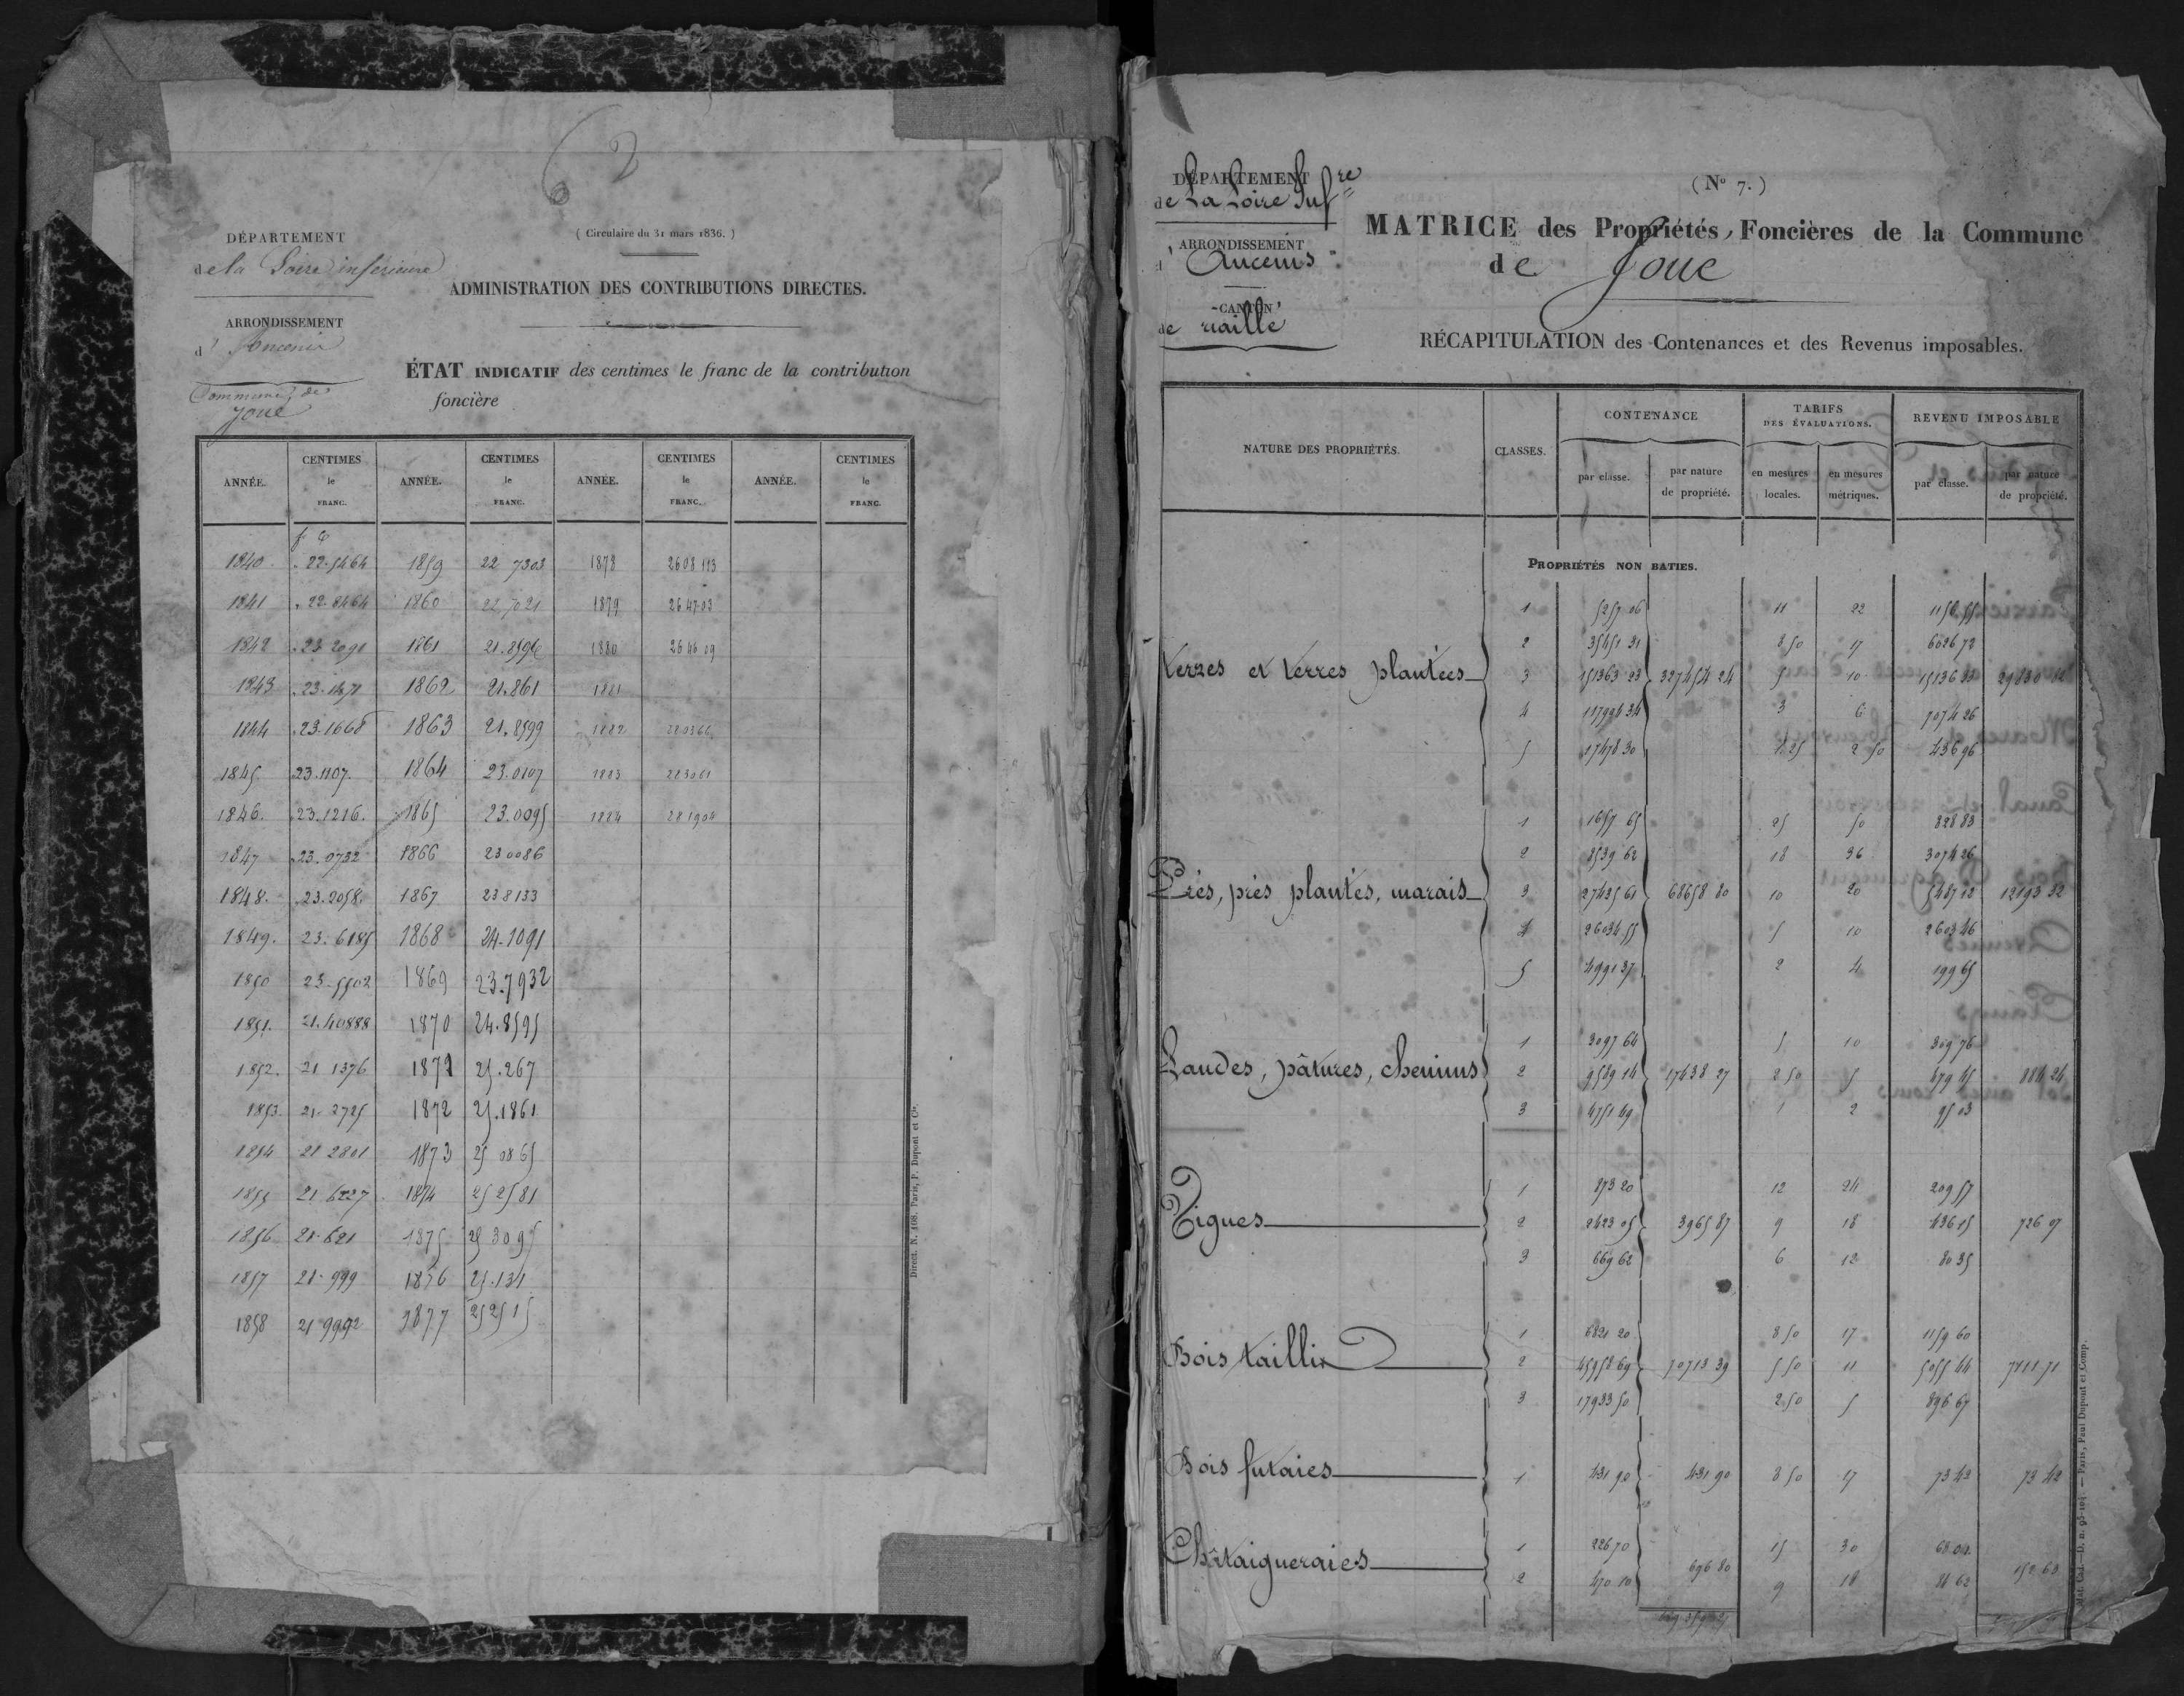 DÉPARTEMENT
de la Loire inférieure
ARRONDISSEMENT
d' Ancenis
Commune de
Joué
( Circulaire du 31 mars 1836. )
ADMINISTRATION DES CONTRIBUTIONS DIRECTES.
ÉTAT INDICATIF des centimes le franc de la contribution
foncière
ANNÉE. CENTIMES le FRANC. ANNÉE. CENTIMES le FRANC. ANNÉE. CENTIMES le FRANC. ANNÉE. CENTIMES le FRANC.
1840 22.5464 1859 22 7303 1878 2608113
1841 22.8464 1860 22,7021 1879 264703
1842 23 2091 1861 21.8596 1880 264609
1843 23.1471 1862 21.861 1881
1844 23.1668 1863 21.8599 1882 280366
1845 23.1107 1864 23.0107 1883 283061
1846. 23.1216. 1865 23.0095 1884 281904
1847 23.0732 1866 23 0086
1848. 23.2058. 1867 23 8133
1849. 23.6185 1868 24.1091
1850 23.5502 1869 23.7932
1851. 21.40888 1870 24.8595
1852. 21 1376 1871 25.267
1853. 21.2725 1872 25.1861
1854 21 2801 1873 25 0865
1855 21.6227 1874 25 2581
1856 21.621 1875 25 3095
1857 21.999 1876 25.131
1858 21 9992 1877 25 2515
Direct. N. 108. Paris, P. Dupont et Cie.
DÉPARTEMENT
de La Loire Infre
ARRONDISSEMENT
d' Ancenis
CANTON
de riaillé
( No 7. )
MATRICE des Propriétés Foncières de la Commune
de Joué
RÉCAPITULATION des Contenances et des Revenus imposables.
NATURE DES PROPRIÉTÉS. CLASSES. CONTENANCE TARIFS DES ÉVALUATIONS. REVENU IMPOSABLE
par classe. par nature de propriété. en mesures locales. en mesures métriques. par classe. par nature de propriété.
PROPRIÉTÉS NON BATIES.
1 5257 06 11 22 1156 55
2 35451 31 8 50 17 6026 72
terres et terres plantées 3 151363 23 327454 24 5 10 15136 32
4 117904 34 3 6 7074 26
5 17478 30 1 25 2 50 436 96
1 1657 65 25 50 828 83
2 8539 62 18 36 3074 26
Prés, prés plantés, marais 3 27435 61 68658 80 10 20 5487 12 12193 32
4 26034 55 5 10 2603 46
5 4991 37 2 4 199 65
1 3097 64 5 10 309 76
Landes, pâtures, chemins 2 9589 14 17438 27 2 50 5 479 45 884 24
3 4751 49 1 2 95 03
1 873 20 12 24 209 57
Vignes 2 2423 05 3965 87 9 18 436 15 726 07
3 669 62 6 12 80 35
1 6821 20 8 50 17 1159 60
Bois taillis 2 45958 69 70713 39 5 50 11 5055 44 7111 71
3 17933 50 2 50 5 896 67
Bois futaies 1 431 90 431 90 8 50 17 73 42 73 42
1 226 70 15 30 68 01
Châtaigneraies 696 80 152 63
2 470 10 9 18 84 62
Mat. Cad.—D. n. 95-103 — Paris, Paul Dupont et Comp.